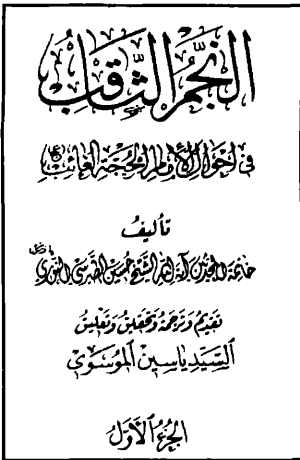 النَّجْمُ الثَّاقِبُ
في أحوال الإمام الحجة الغائب (ع)
تأليف
خاتمة المحدثين آية الله الشيخ حسين الطبرسي النوري
تقديم وترجمة وتحقيق وتعليق
السيد ياسين الموسوي
الجزء الأول